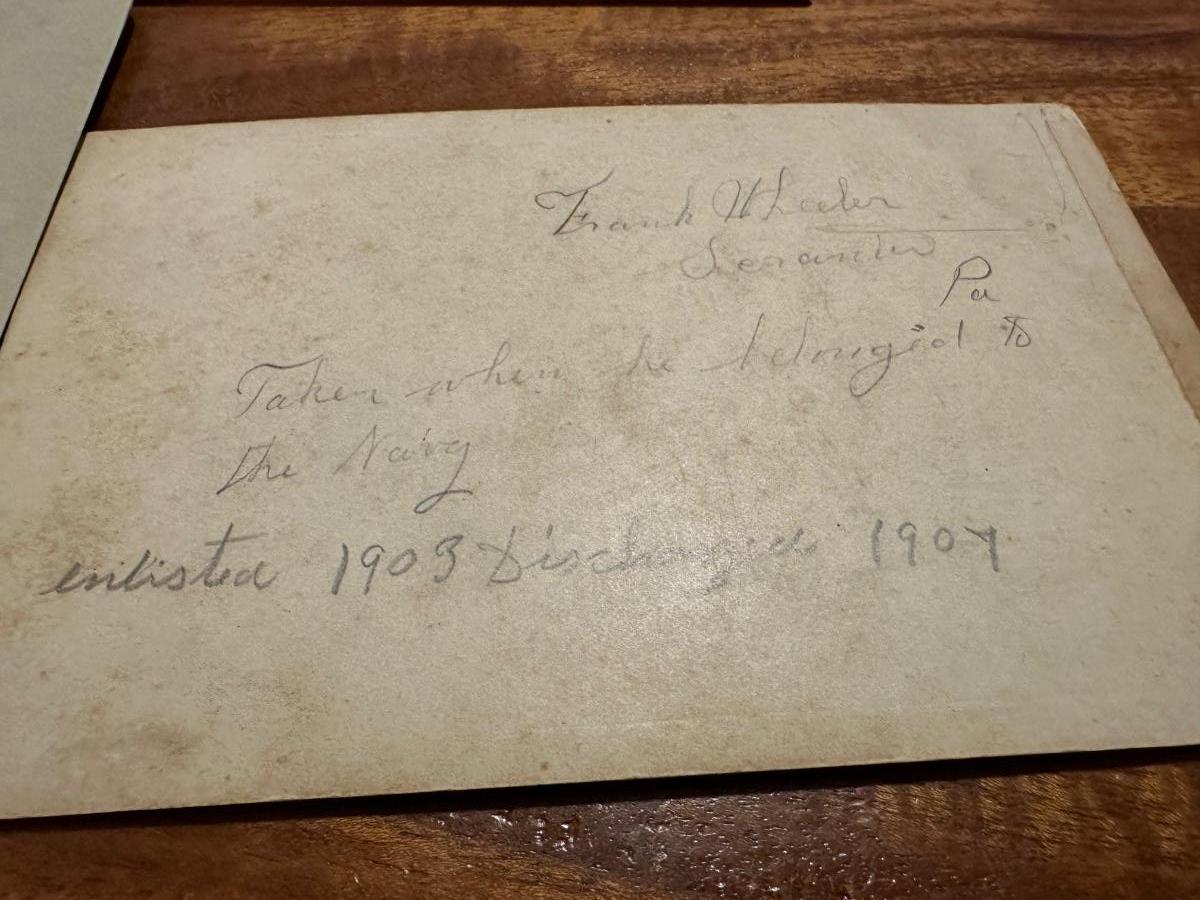 Frank Wheeler
Scranton
Pa
Taken when he belonged to
the Navy
enlisted 1903 Discharged 1907